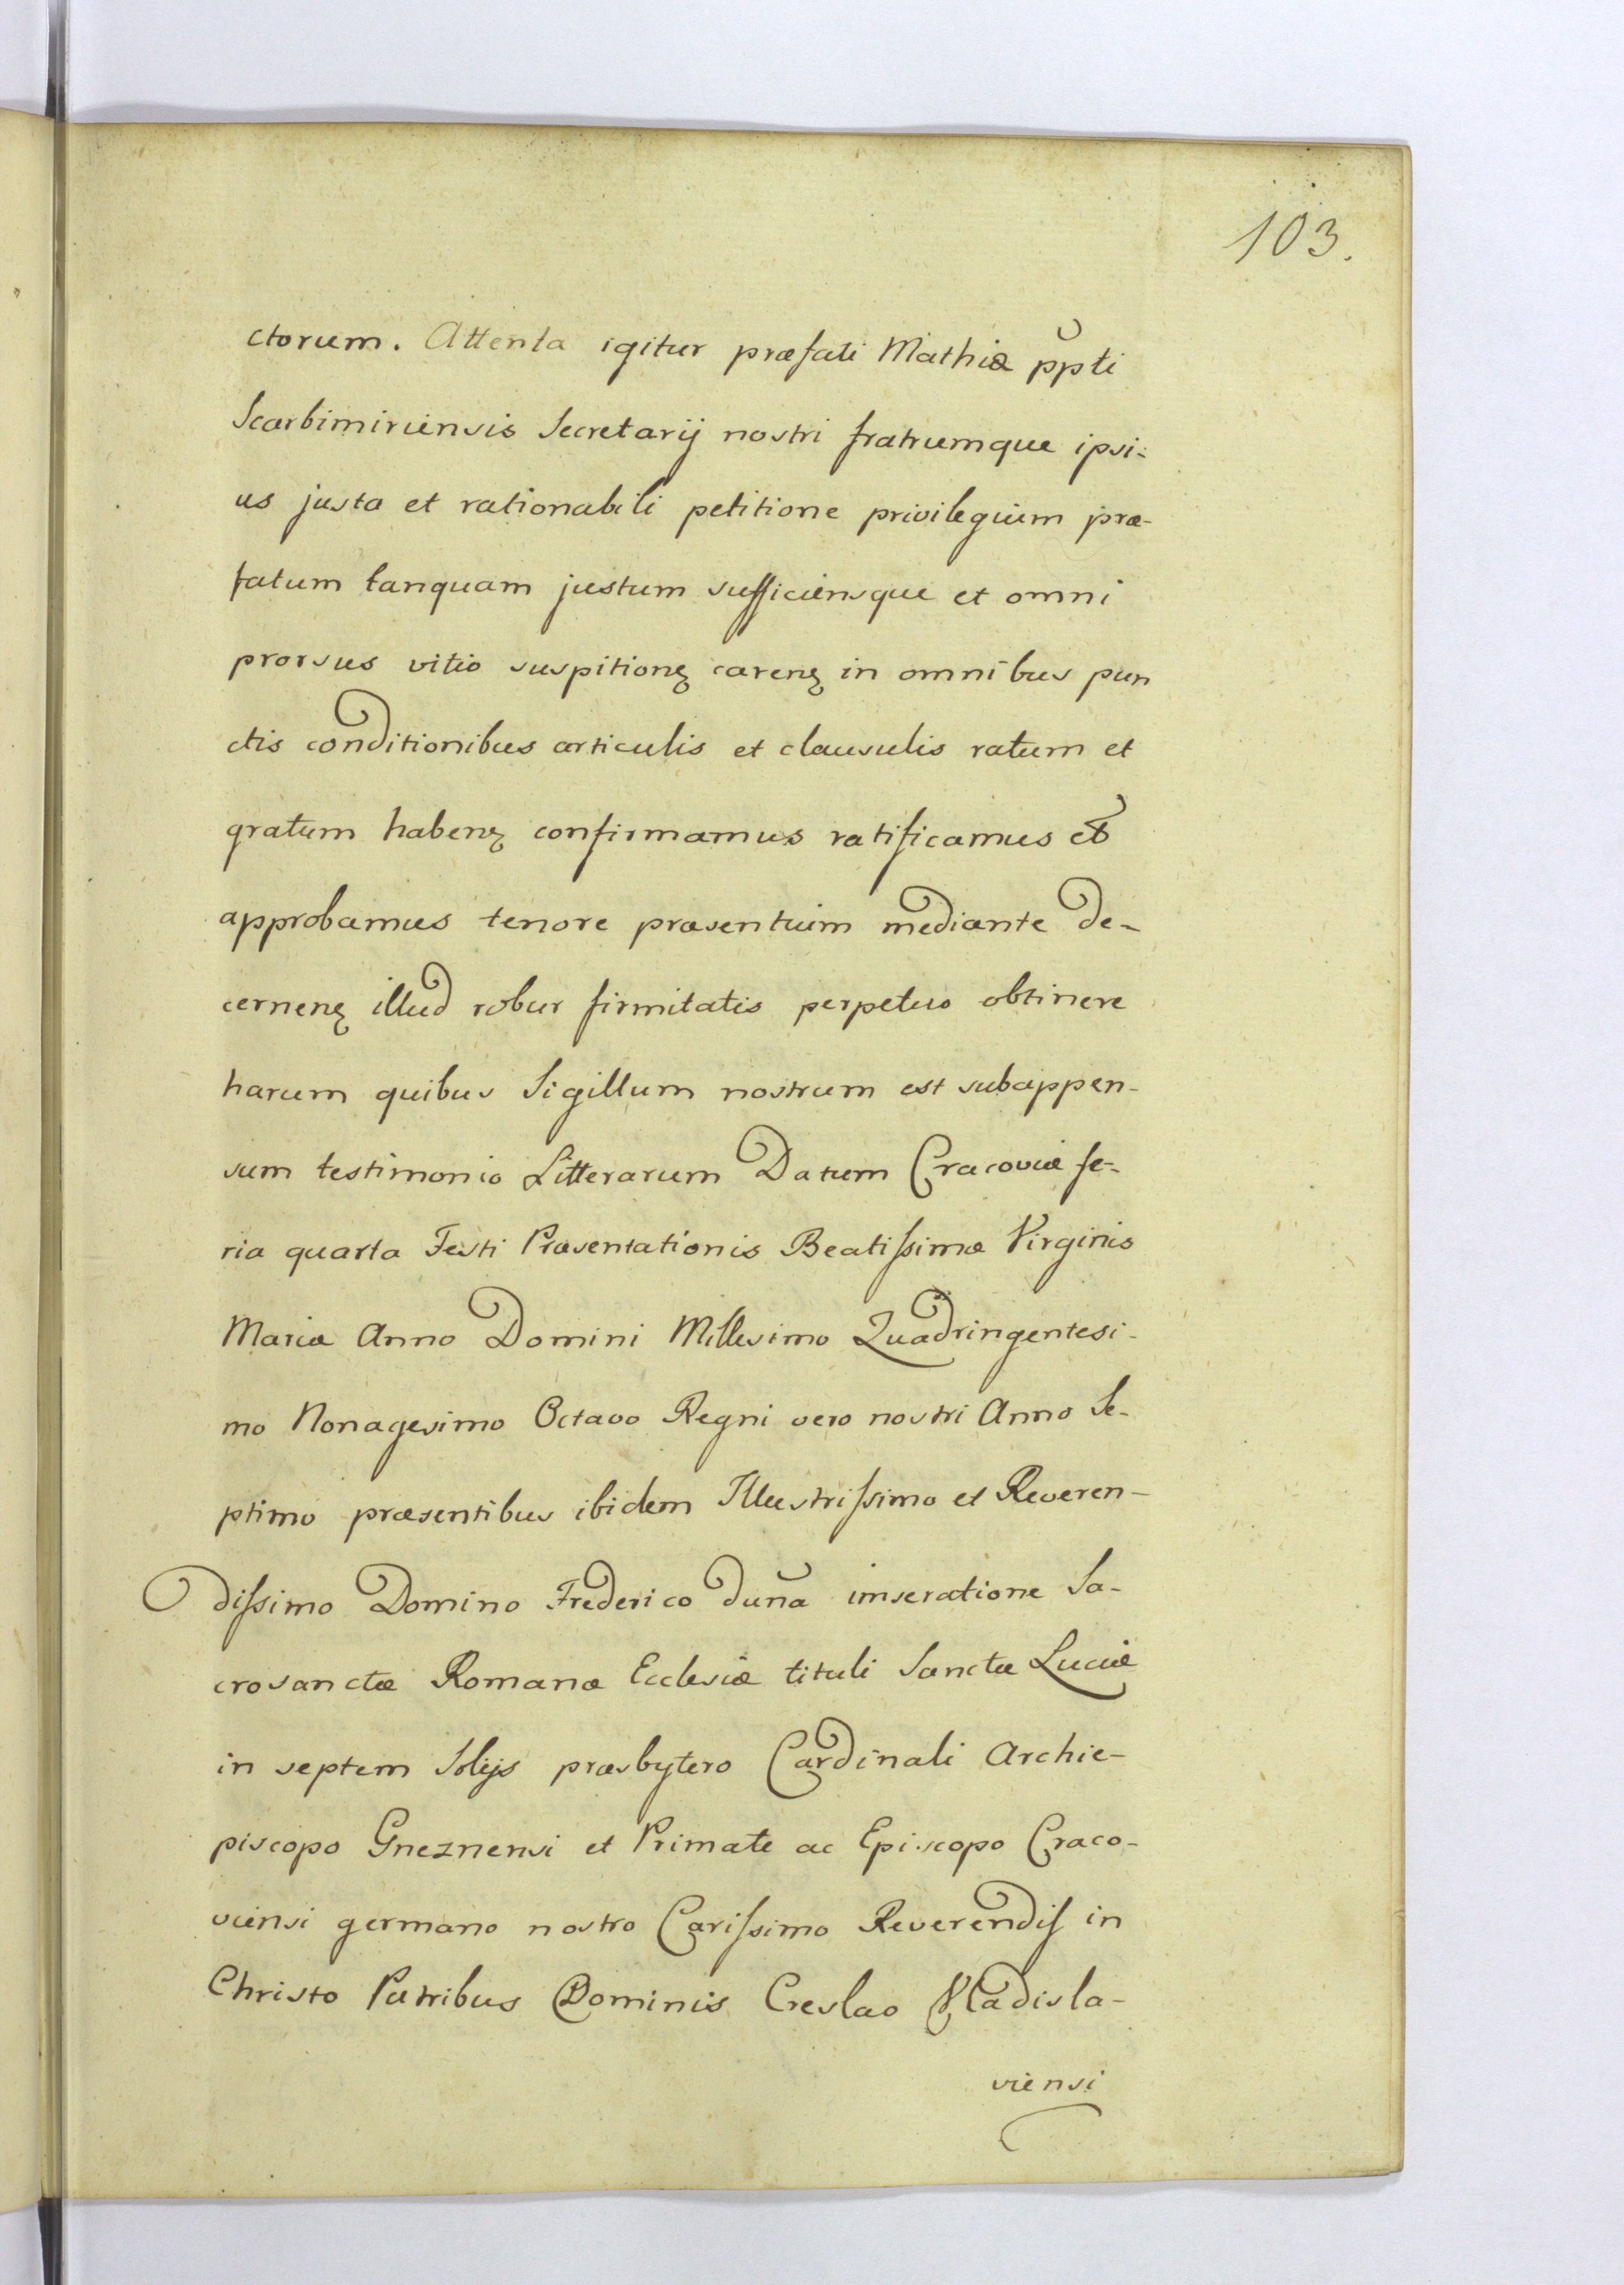 103.
ctorum. Attenta igitur præfati Mathiæ pp̆ti
Scarbimiriensis Secretarij nostri fratrumque ipsi-
us justa et rationabili petitione privilegium præ-
fatum tanquam justum sufficiensque et omni
prorsus vitio suspitionꝫ carenꝫ in omnibus pun
ctis conditionibus articulis et clausulis ratum et
gratum habenꝫ confirmamus ratificamus et
approbamus tenore præsentium mediante de-
cernenꝫ illud robur firmitatis perpetuo obtinere
harum quibus Sigillum nostrum est subappen-
sum testimonio Litterarum Datum Cracoviæ fe-
ria quarta Festi Præsentationis Beatissimæ Virginis
Mariæ Anno Domini Millesimo Quadringentesi-
mo Nonagesimo Octavo Regni vero nostri Anno Se-
ptimo præsentibus ibidem Illustrissimo et Reveren-
dissimo Domino Frederico duña imseratione Sa-
crosanctæ Romanæ Ecclesiæ tituli Sanctæ Luciæ
in septem Solijs præsbytero Cardinali Archie-
piscopo Gneznensi et Primate ac Episcopo Craco-
viensi germano nostro Carissimo Reverendis in
Christo Patribus Dominis Creslao Vladisla-
viensi